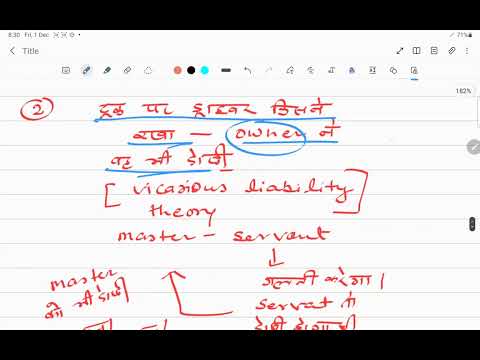 8:30 Fri, 1 Dec
71%
Title
182%
② ट्रक पर ड्राइवर किसने
रखा — owner ने
वह भी दोषी
[ vicarious liability
theory ]
master — servent
↓
master
को भी
गलती करेगा।
servat तो
दोषी होगा ही